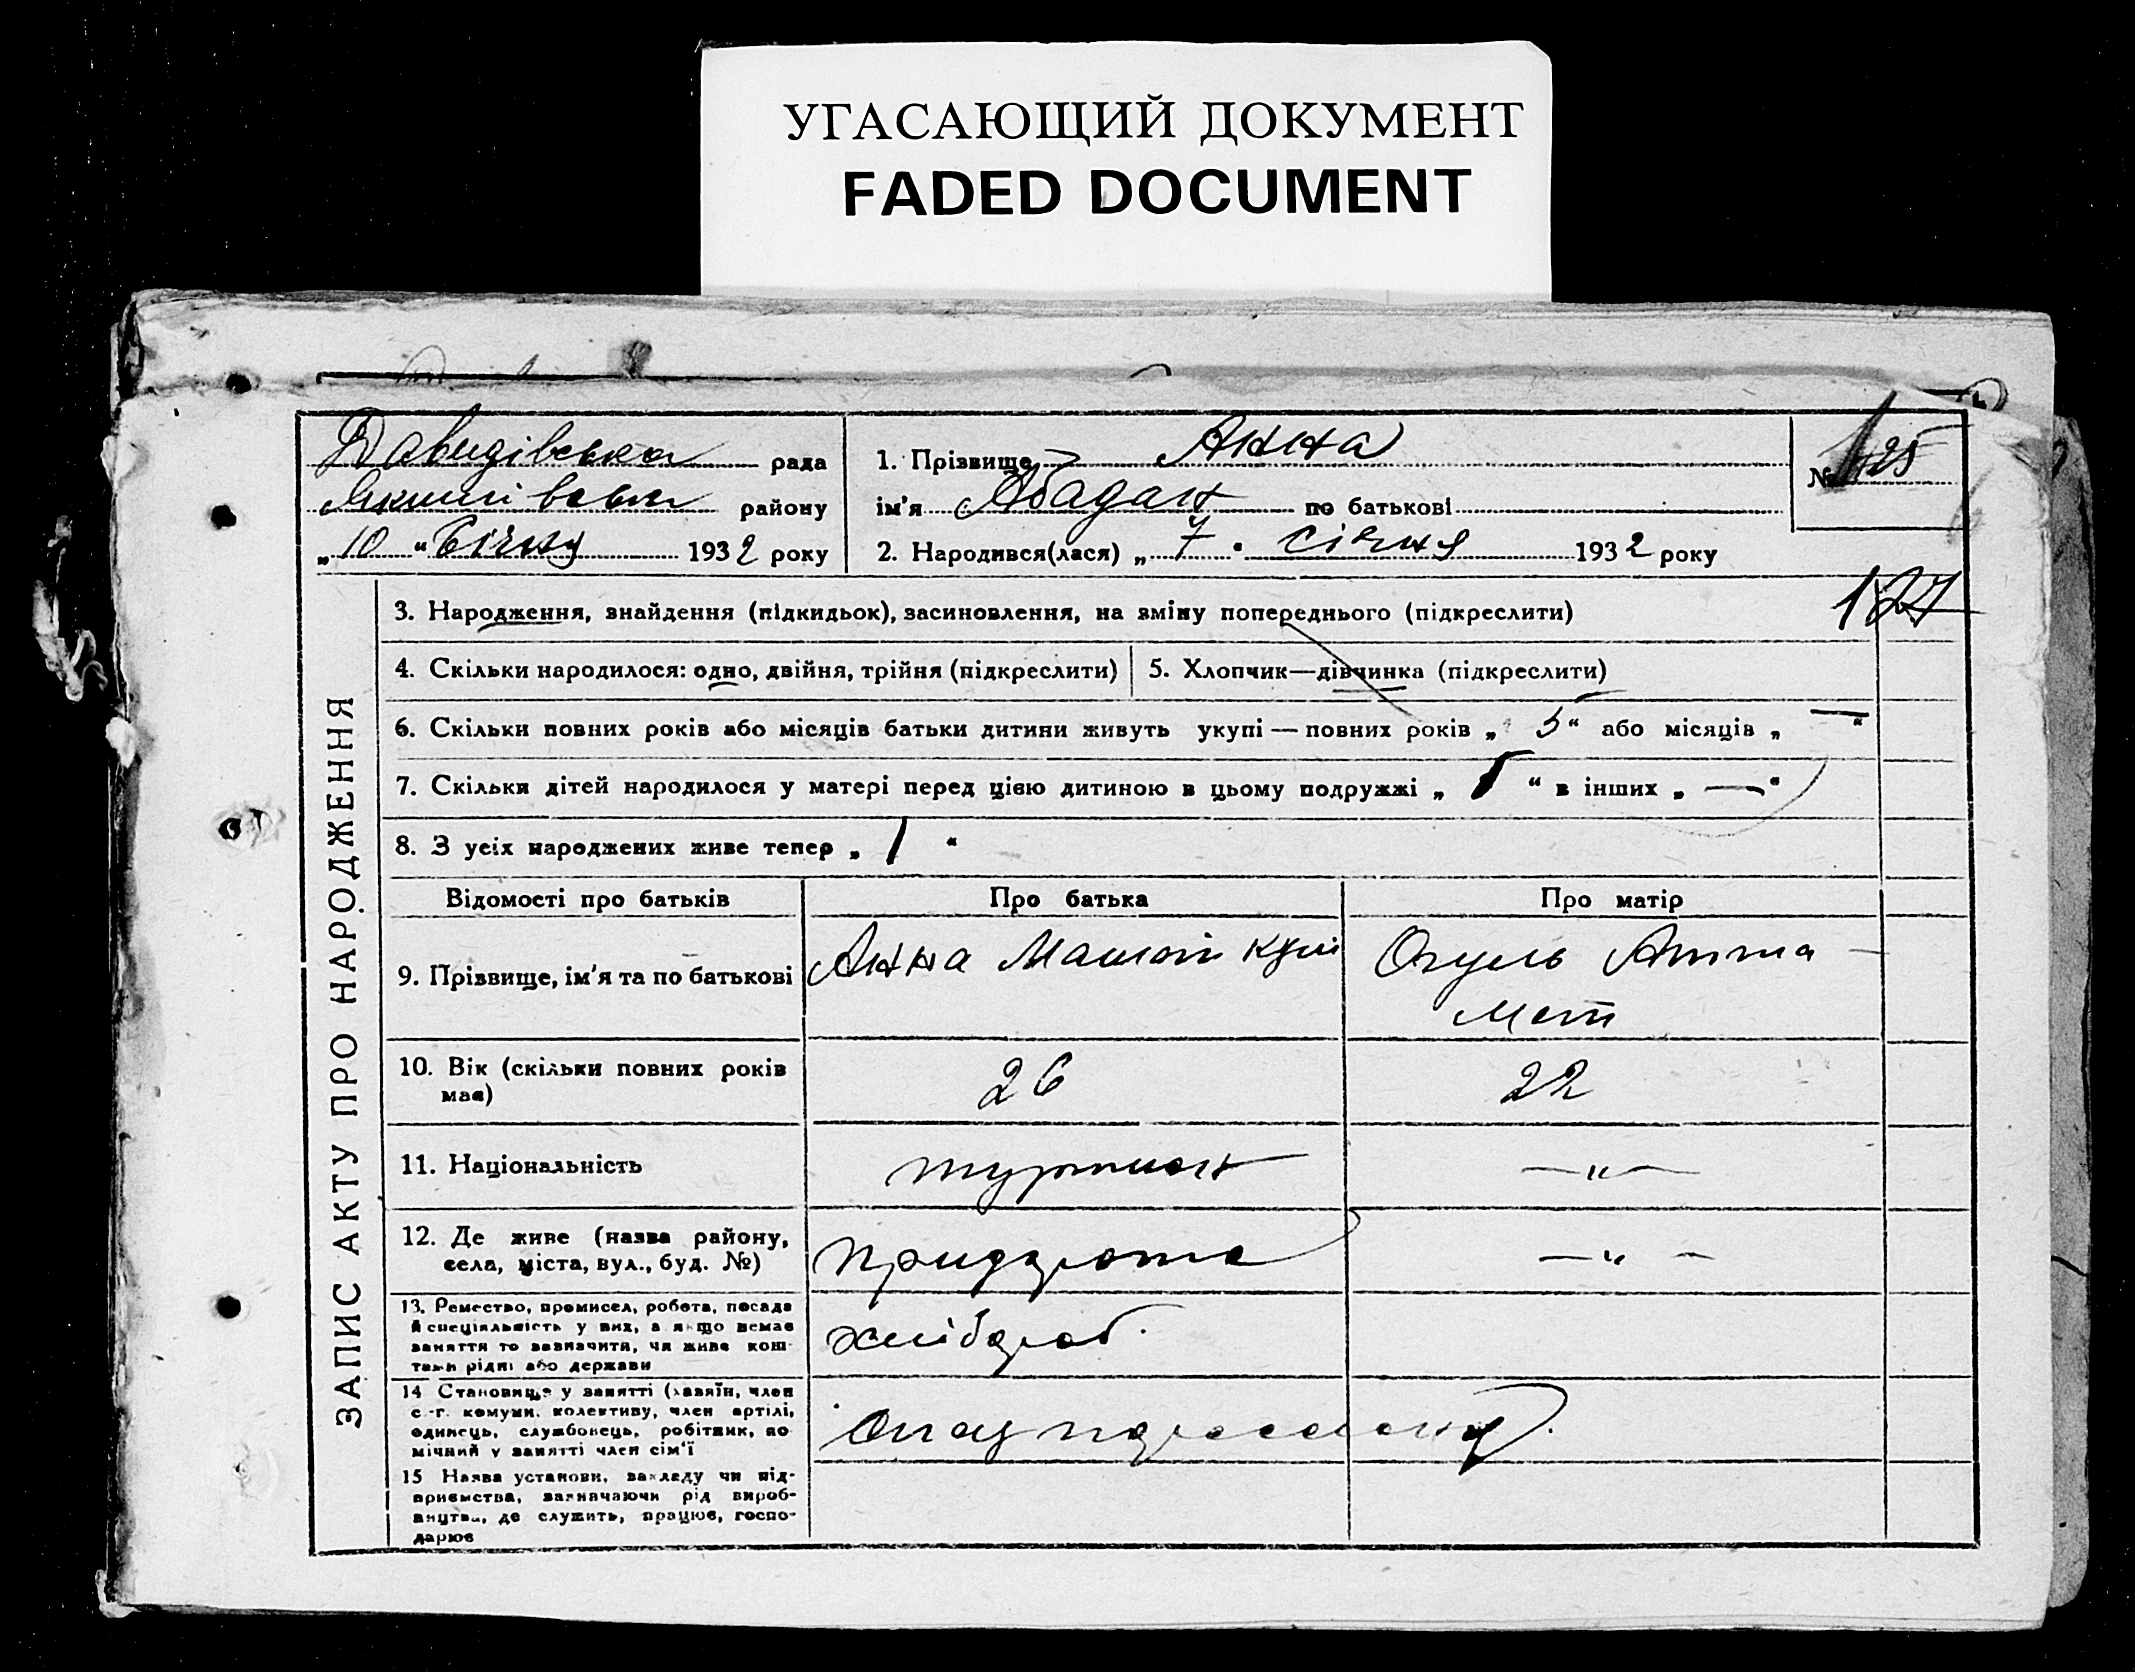 УГАСАЮЩИЙ ДОКУМЕНТ
FADED DOCUMENT
Давидівська рада
Якимівськ району
„10“ Січня 1932 року
1. Прізвище Анна
ім'я Абадан по батькові
2. Народився(лася) „7“ січня 1932 року
№ 125
127
ЗАПИС АКТУ ПРО НАРОДЖЕННЯ
3. Народження, знайдення (підкидьок), засиновлення, на зміну попереднього (підкреслити)
4. Скільки народилося: одно, двійня, трійня (підкреслити)
5. Хлопчик—дівчинка (підкреслити)
6. Скільки повних років або місяців батьки дитини живуть укупі — повних років „5“ або місяців „—“
7. Скільки дітей народилося у матері перед цією дитиною в цьому подружжі „1“ в інших „—“
8. З усіх народжених живе тепер „1“
Відомості про батьків Про батька Про матір
9. Прізвище, ім'я та по батькові Анна Огуль
10. Вік (скільки повних років має) 26 22
11. Національність туркмен —„—
12. Де живе (назва району, села, міста, вул., буд. №) —„—
13. Ремество, промисел, робота, посада
й спеціяльність у них, а якщо немає
заняття то зазначити, чи живе кош-
тами рідні або держави
хлібороб.
14 Становище у занятті (хазяїн, член
с.-г. комуни, колективу, член артілі,
одинець, службовець, робітник, по-
мічний у занятті член сім'ї
15 Назва установи, закладу чи під-
приємства, зазначаючи рід вироб-
ництва, де служить, працює, госпо-
дарює